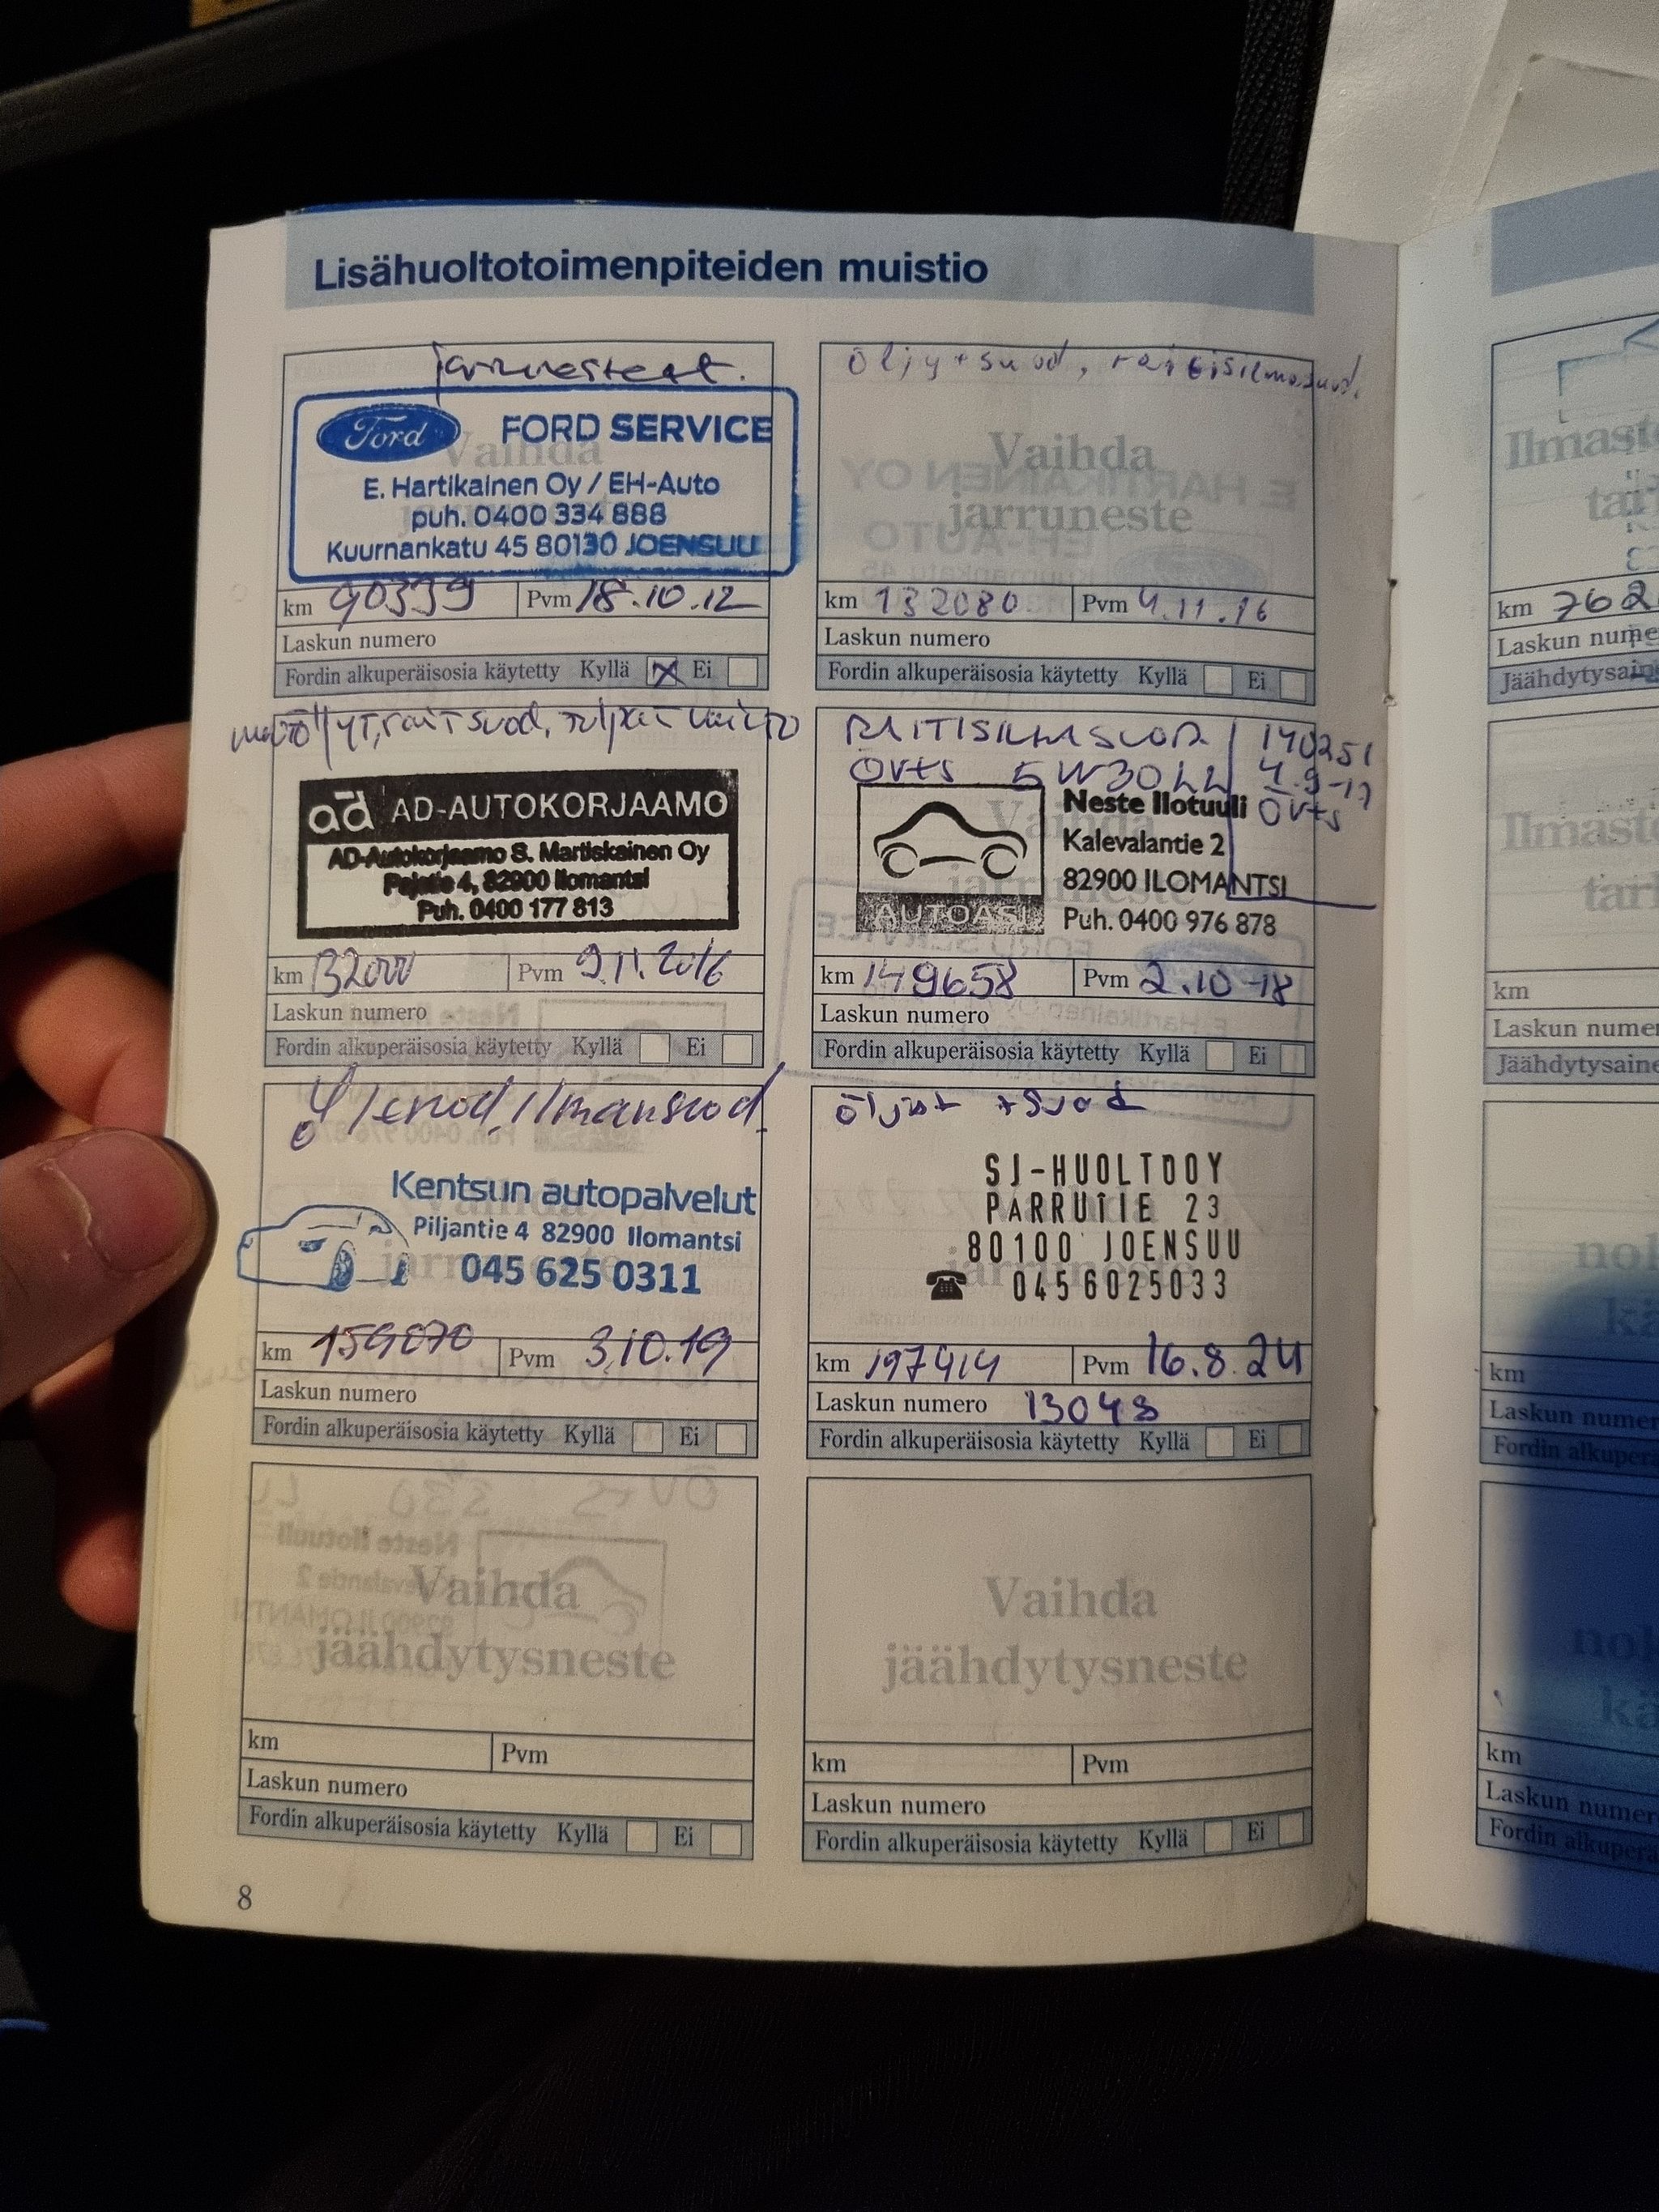 Lisähuoltotoimenpiteiden muistio
jarrunesteet.
Ford FORD SERVICE
E. Hartikainen Oy / EH-Auto
puh. 0400 334 888
Kuurnankatu 45 80130 JOENSUU
Vaihda
km 90339 Pvm 18.10.12
Laskun numero
Fordin alkuperäisosia käytetty Kyllä X Ei
öljy + suod, raitisilmasuod.
Vaihda
jarruneste
E HARTIKAINEN OY
EH-AUTO
km 132080 Pvm 4.11.16
Laskun numero
Fordin alkuperäisosia käytetty Kyllä Ei
raitsuod,
ad AD-AUTOKORJAAMO
AD-Autokorjaamo S. Martiskainen Oy
Pajatie 4, 82900 Ilomantsi
Puh. 0400 177 813
km 132000 Pvm 9.11.2016
Laskun numero
Fordin alkuperäisosia käytetty Kyllä Ei
RAITISILMASUOD
ÖV+S 5W30LL
140251
4.9-17
ÖV+S
Neste Ilotuuli
Kalevalantie 2
82900 ILOMANTSI
AUTOASI Puh. 0400 976 878
km 149658 Pvm 2.10-18
Laskun numero
Fordin alkuperäisosia käytetty Kyllä Ei
Ilmansuod.
Kentsun autopalvelut
Piljantie 4 82900 Ilomantsi
045 625 0311
jarruneste
km 159070 Pvm 3.10.19
Laskun numero
Fordin alkuperäisosia käytetty Kyllä Ei
öljyt + suod
SJ-HUOLTO OY
PARRUTIE 23
80100 JOENSUU
0456025033
km 197414 Pvm 16.8.24
Laskun numero 13048
Fordin alkuperäisosia käytetty Kyllä Ei
Vaihda
jäähdytysneste
km Pvm
Laskun numero
Fordin alkuperäisosia käytetty Kyllä Ei
Vaihda
jäähdytysneste
km Pvm
Laskun numero
Fordin alkuperäisosia käytetty Kyllä Ei
8
Ilmast
km 762
Laskun nume
Jäähdytysaine
Ilmast
km
Laskun nume
Jäähdytysaine
km
Laskun numer
Fordin alkuperä
km
Laskun numer
Fordin alkuperä